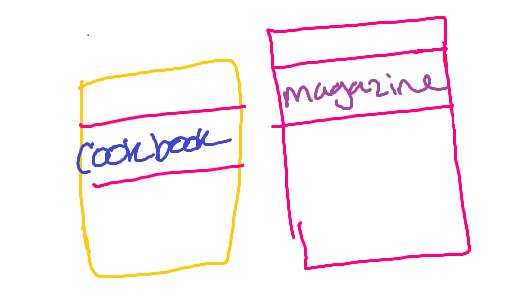 Cookbook
magazine